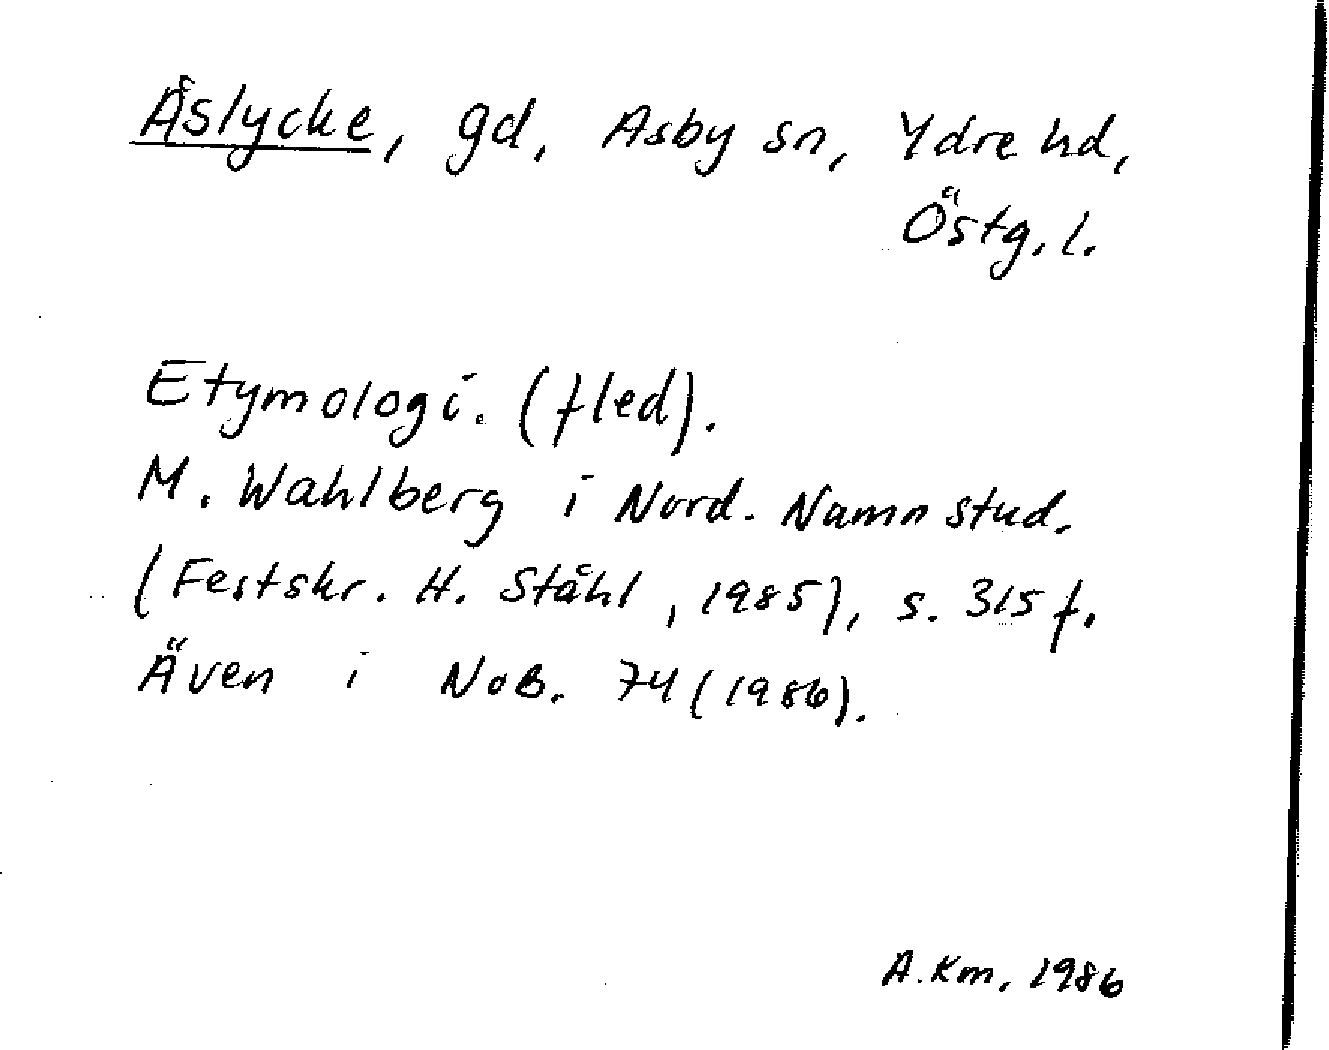 Åslycke, gd, Asby sn, Ydre hd,
Östg. l.
Etymologi. (fled).
M. Wahlberg i Nord. Namnstud.
(Festskr. H. Ståhl, 1985), s. 315 f.
Även i NoB. 74 (1986).
A. Km. 1986